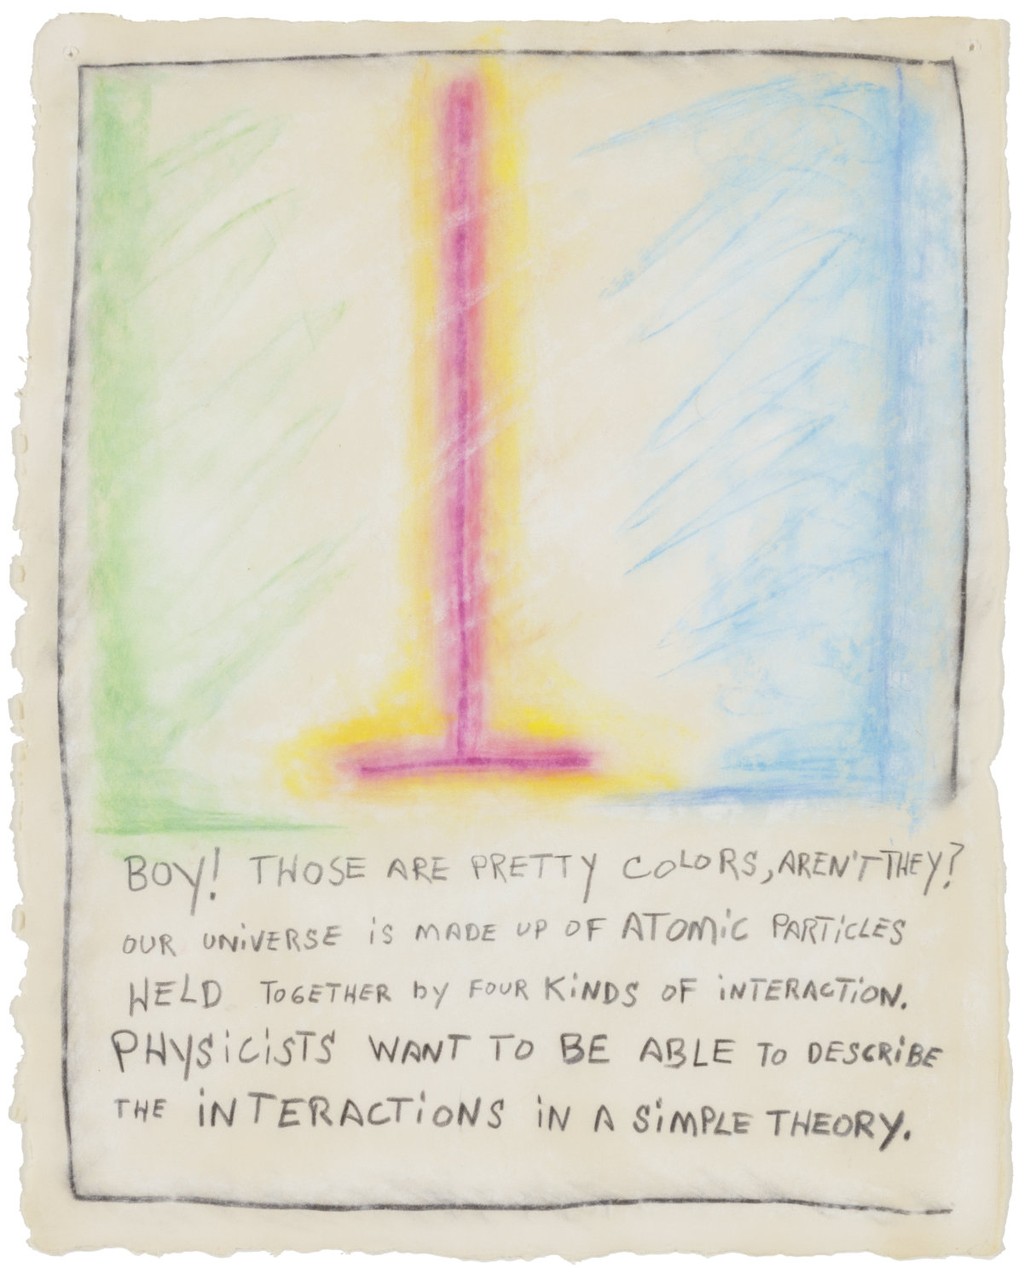 BOY! THOSE ARE PRETTY COLORS, AREN'T THEY?
OUR UNIVERSE IS MADE UP OF ATOMIC PARTICLES
HELD TOGETHER BY FOUR KINDS OF INTERACTION.
PHYSICISTS WANT TO BE ABLE TO DESCRIBE
THE INTERACTIONS IN A SIMPLE THEORY.